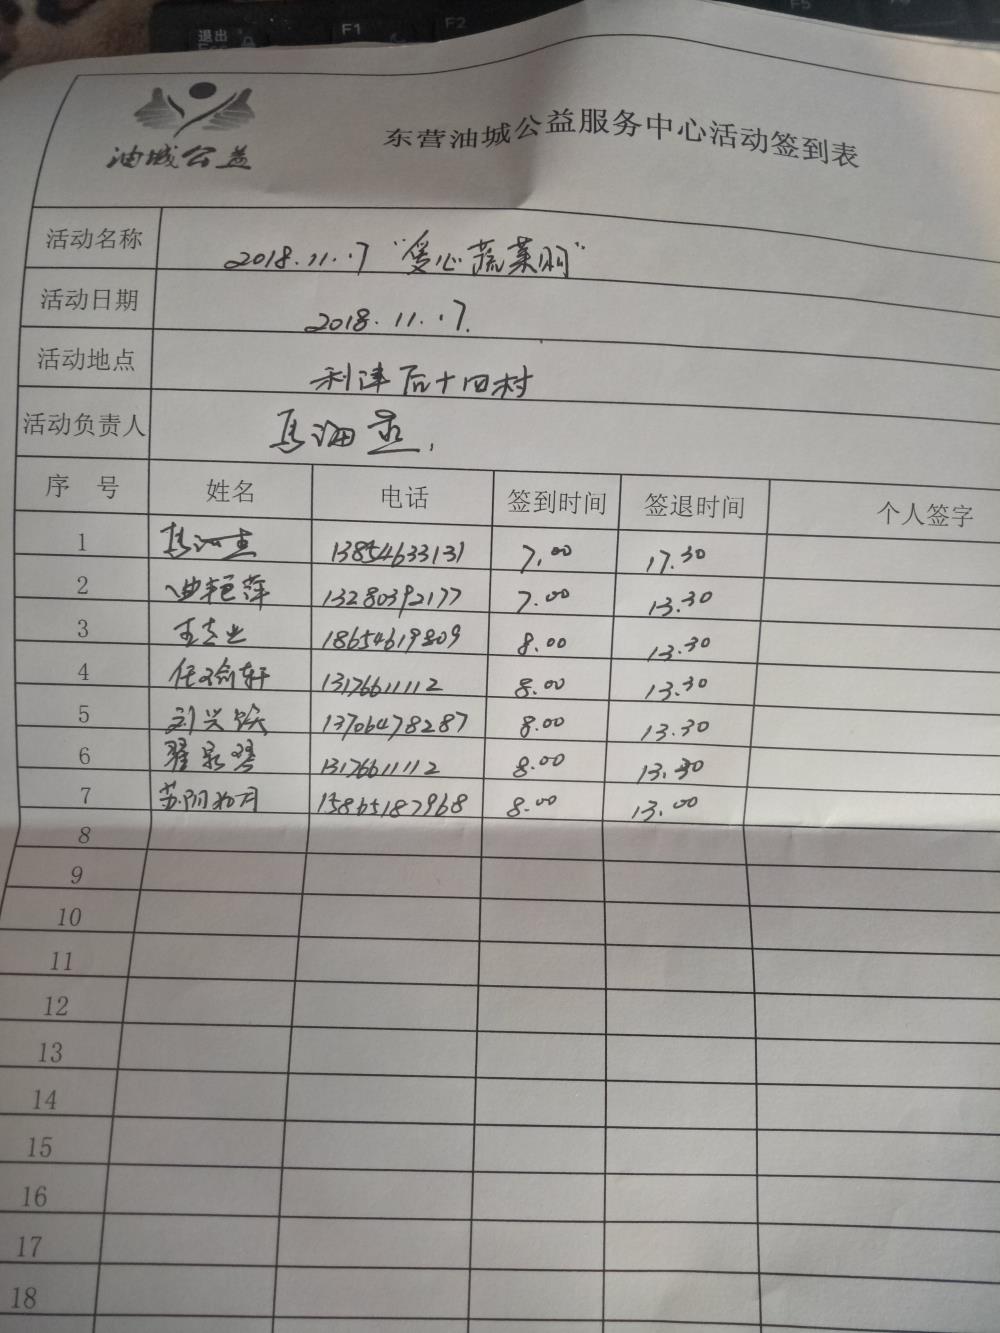 退出
F1
F2
F5
油城公益
东营油城公益服务中心活动签到表
活动名称 2018.11.17 "爱心蔬菜网"
活动日期 2018.11.17.
活动地点 利津后十四村
活动负责人 马海
序号 姓名 电话 签到时间 签退时间 个人签字
1 13854633131 7.00 17.30
2 曲艳萍 13280392177 7.00 13.30
3 王志业 18654619809 8.00 13.30
4 任瑜轩 13176611112 8.00 13.30
5 刘兴 13706478287 8.00 13.30
6 翟 13176611112 8.00 13.30
7 苏阴如月 15865187968 8.00 13.00
8
9
10
11
12
13
14
15
16
17
18